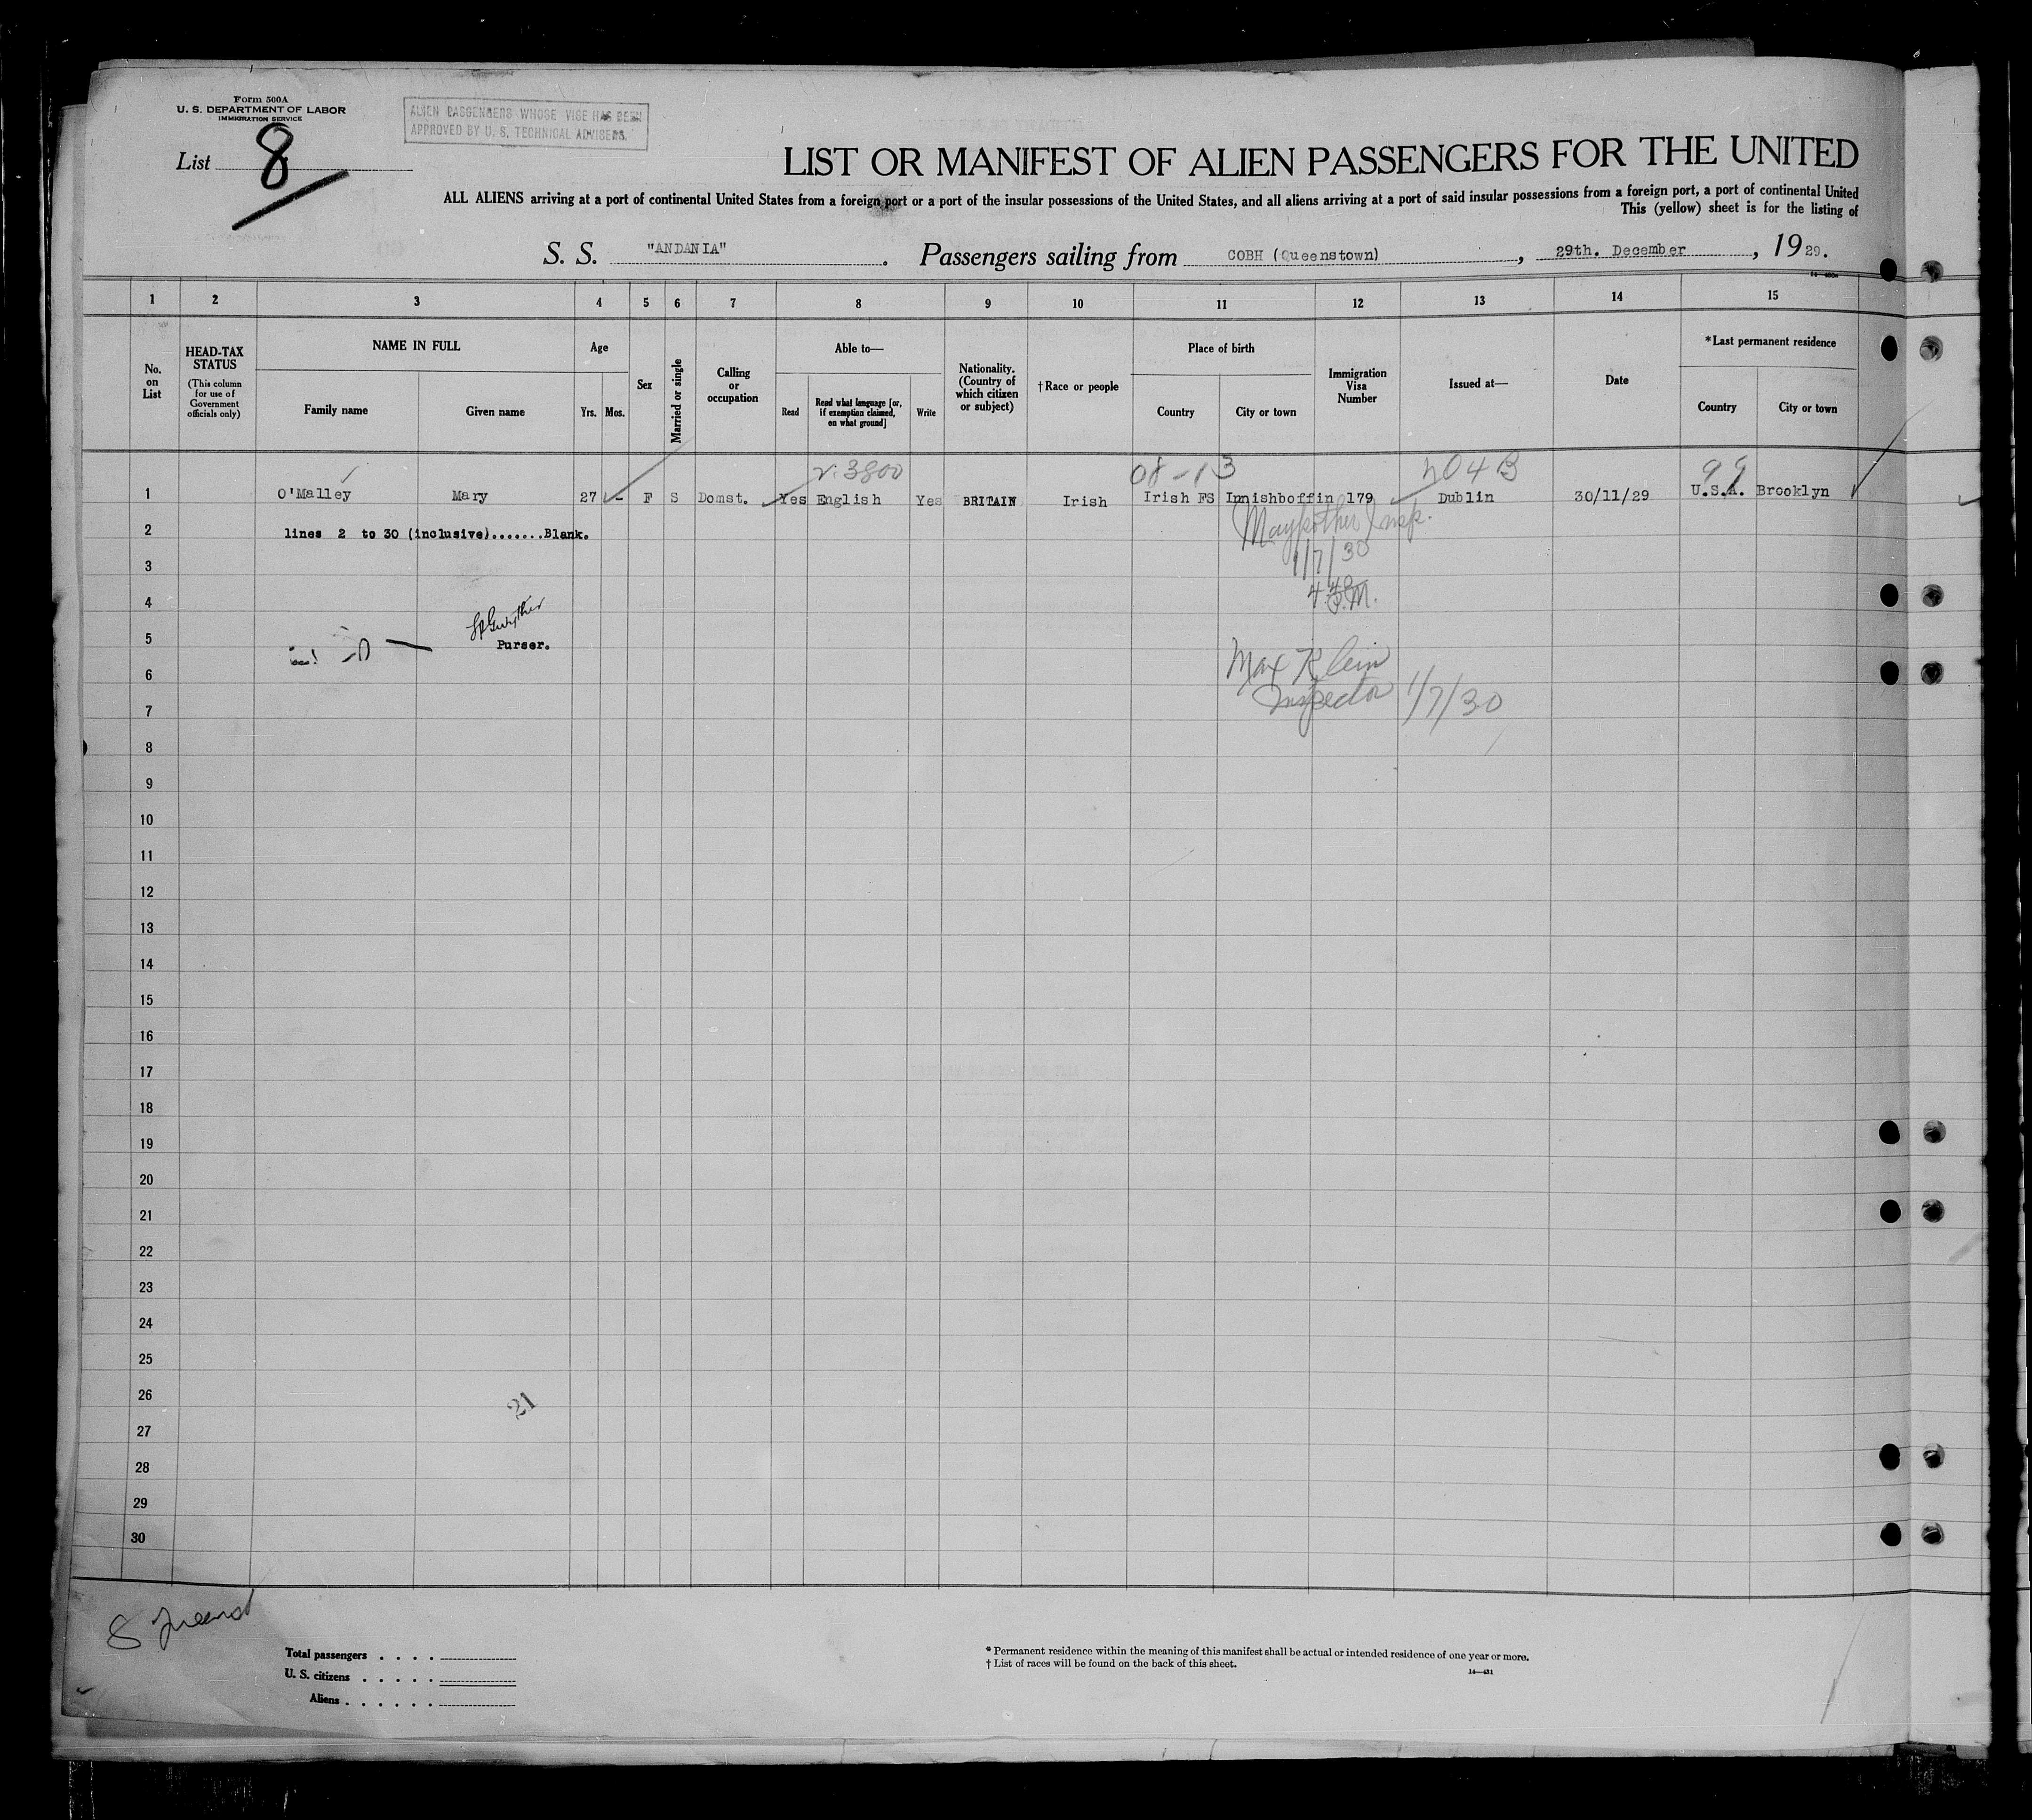 Form 500A
U. S. DEPARTMENT OF LABOR
IMMIGRATION SERVICE
ALIEN PASSENGERS WHOSE VISE HAS BEEN
APPROVED BY U. S. TECHNICAL ADVISERS.
List 8
LIST OR MANIFEST OF ALIEN PASSENGERS FOR THE UNITED
ALL ALIENS arriving at a port of continental United States from a foreign port or a port of the insular possessions of the United States, and all aliens arriving at a port of said insular possessions from a foreign port, a port of continental United
This (yellow) sheet is for the listing of
S. S. "ANDANIA". Passengers sailing from COBH (Queenstown), 29th. December, 1929.
1 2 3 4 5 6 7 8 9 10 11 12 13 14 15
No. on List
HEAD-TAX STATUS (This column for use of Government officials only)
NAME IN FULL
Family name Given name
Age
Yrs. Mos.
Sex
Married or single
Calling or occupation
Able to—
Read
Read what language [or, if exemption claimed, on what ground]
Write
Nationality. (Country of which citizen or subject)
†Race or people
Place of birth
Country City or town
Immigration Visa Number
Issued at—
Date
*Last permanent residence
Country City or town
v. 3800 08-13 204B 99
1 O'Malley Mary 27 - F S Domst. Yes English Yes BRITAIN Irish Irish FS Innishboffin 179 Dublin 30/11/29 U.S.A. Brooklyn
2 lines 2 to 30 (inclusive).......Blank.
Insp.
1/7/30
3
4 4 40 P.M.
5 Purser.
Max Klein
6 Inspector 1/7/30
7
8
9
10
11
12
13
14
15
16
17
18
19
20
21
22
23
24
25
26
21
27
28
29
30
8
Total passengers . . . .
U. S. citizens . . . . .
Aliens . . . . . .
* Permanent residence within the meaning of this manifest shall be actual or intended residence of one year or more.
† List of races will be found on the back of this sheet.
14—431